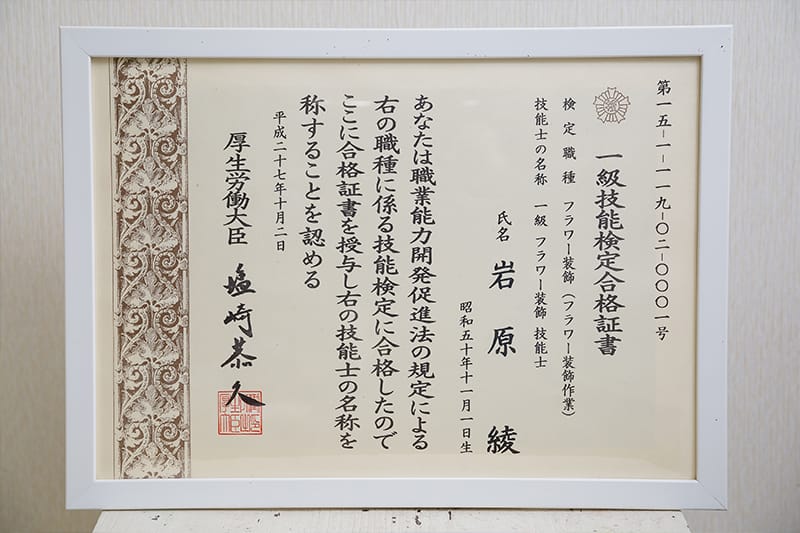 第一五-一-一一九-〇二-〇〇〇一号
一級技能検定合格証書
検定職種 フラワー装飾(フラワー装飾作業)
技能士の名称 一級 フラワー装飾 技能士
氏名 岩原 綾
昭和五十年十一月一日生
あなたは職業能力開発促進法の規定による
右の職種に係る技能検定に合格したので
ここに合格証書を授与し右の技能士の名称を
称することを認める
平成二十七年十月二日
厚生労働大臣 塩崎恭久